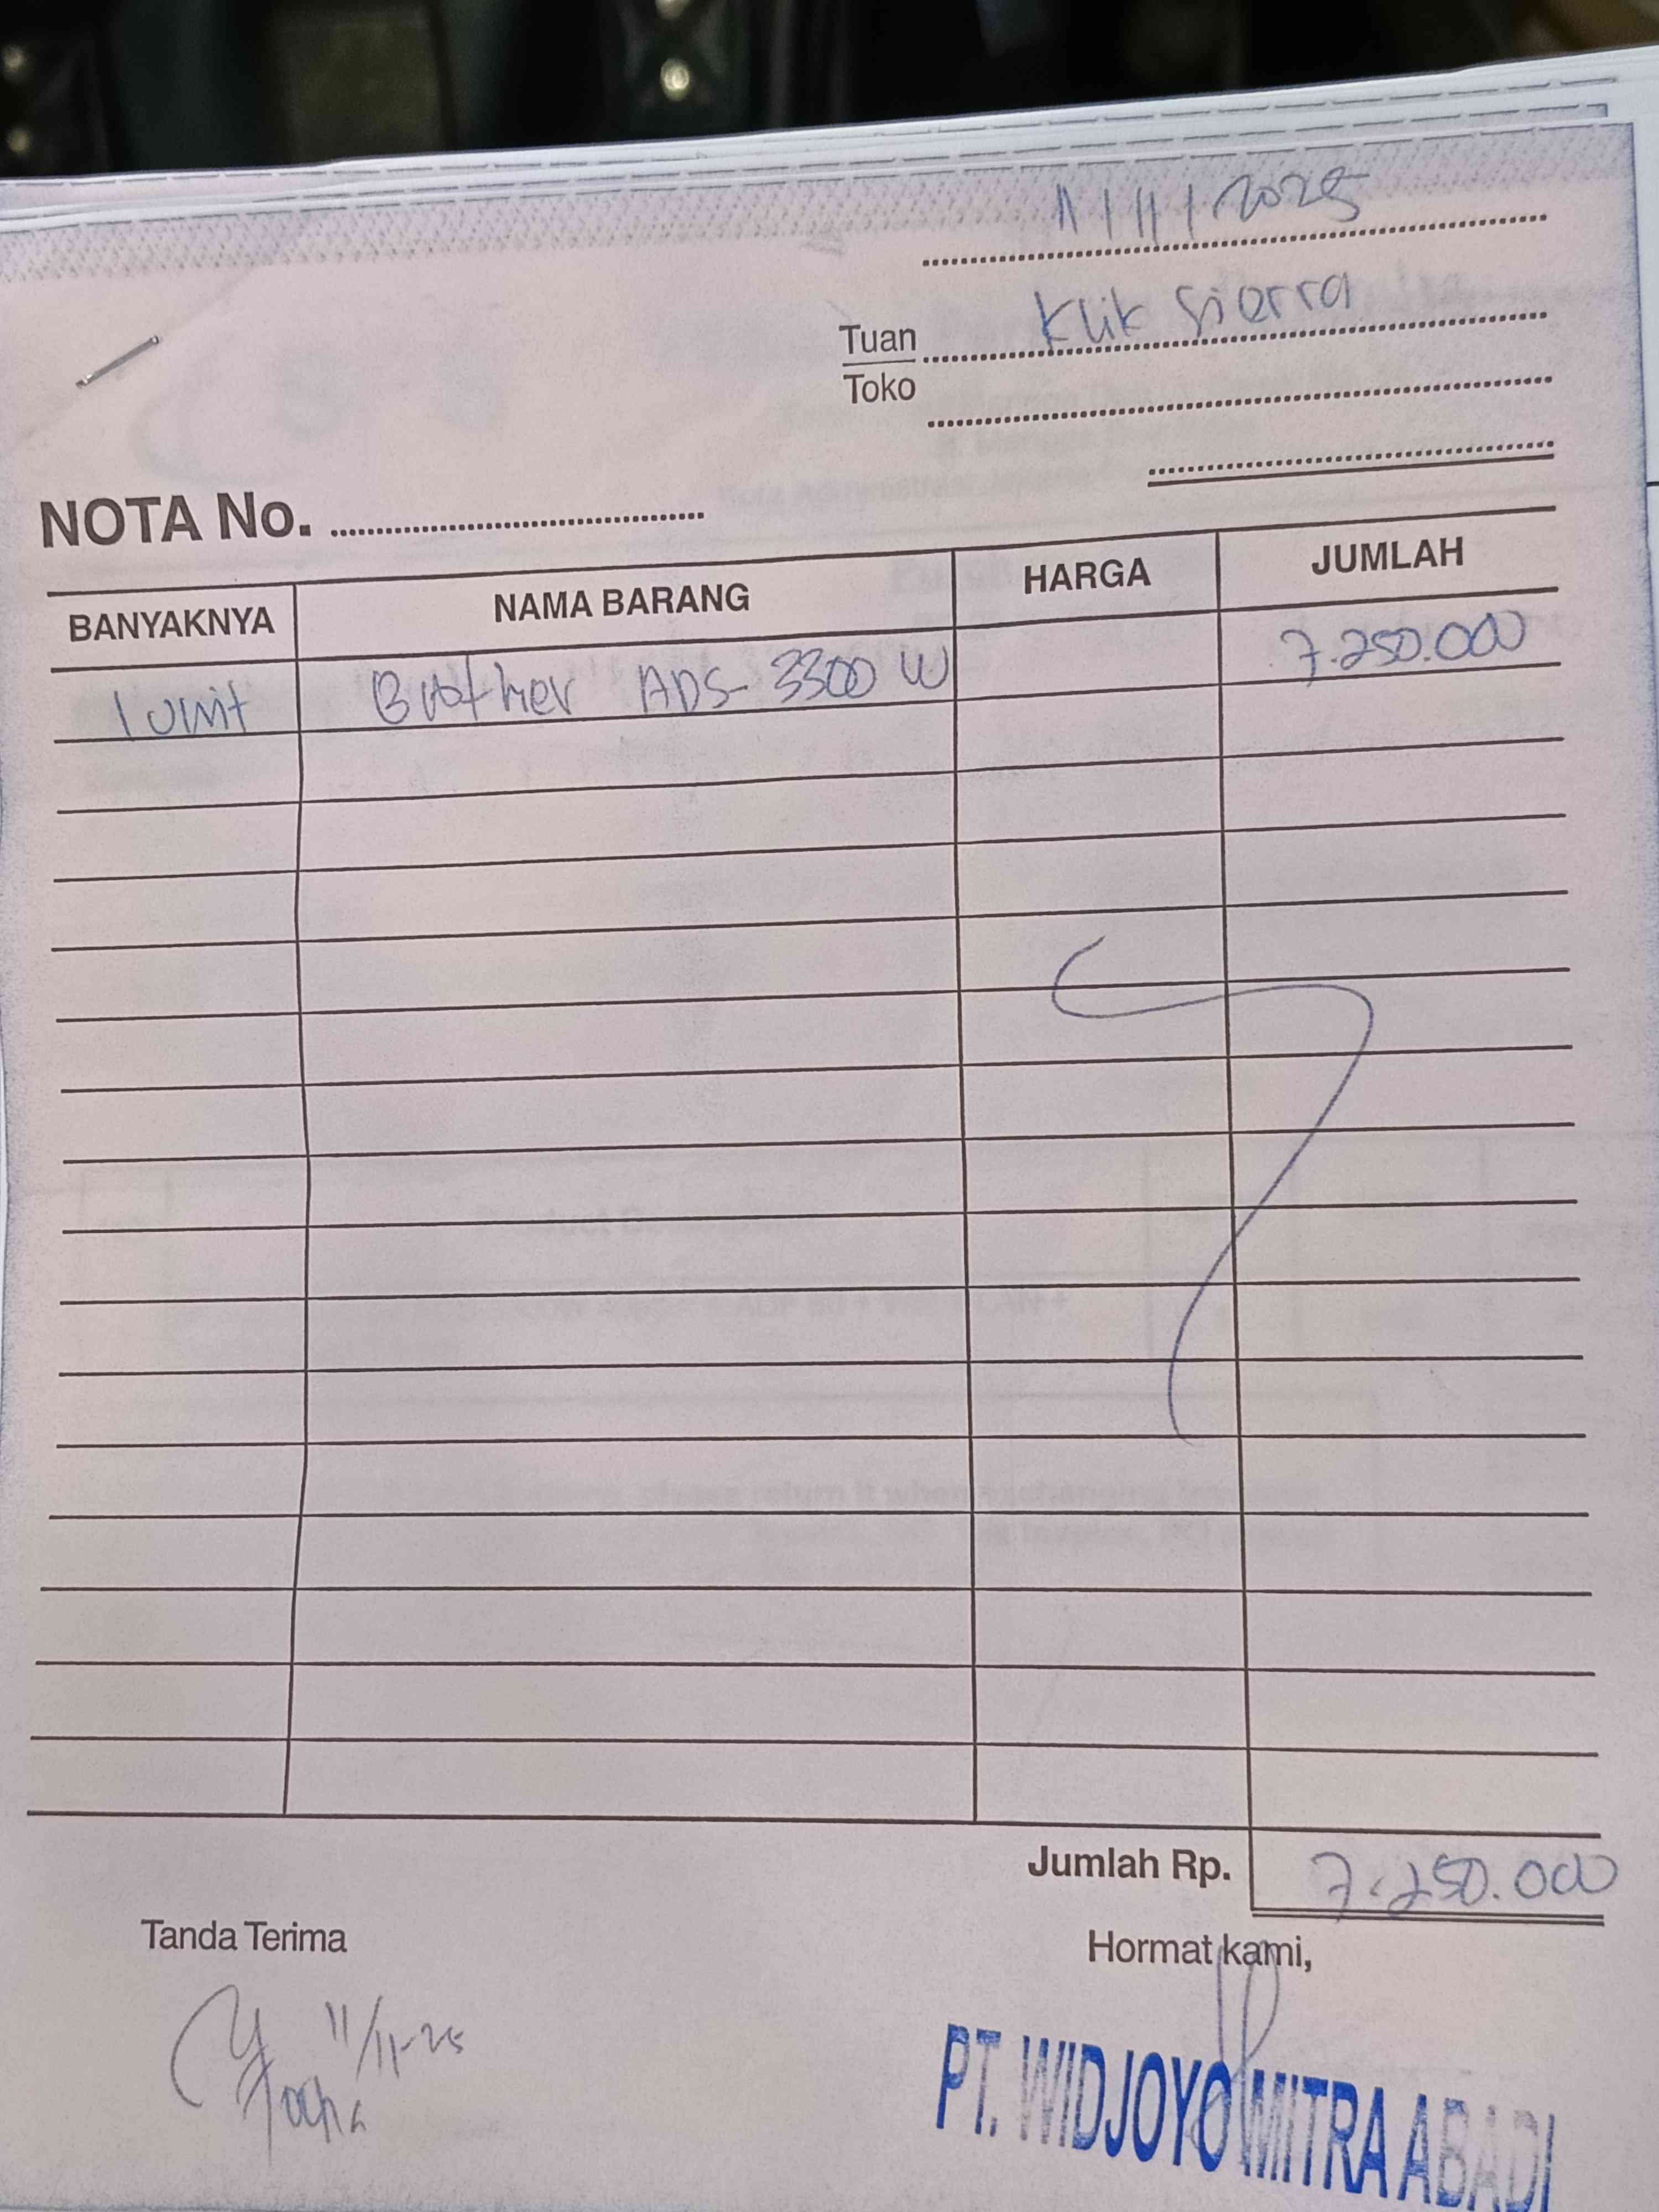 11/11/2025
Tuan Klik Sierra
Toko
NOTA No.
BANYAKNYA NAMA BARANG HARGA JUMLAH
1 unit Brother ADS-3300 W 7.250.000
Jumlah Rp. 7.250.000
Tanda Terima Hormat kami,
11/11-25
PT. WIDJOYO MITRA ABADI